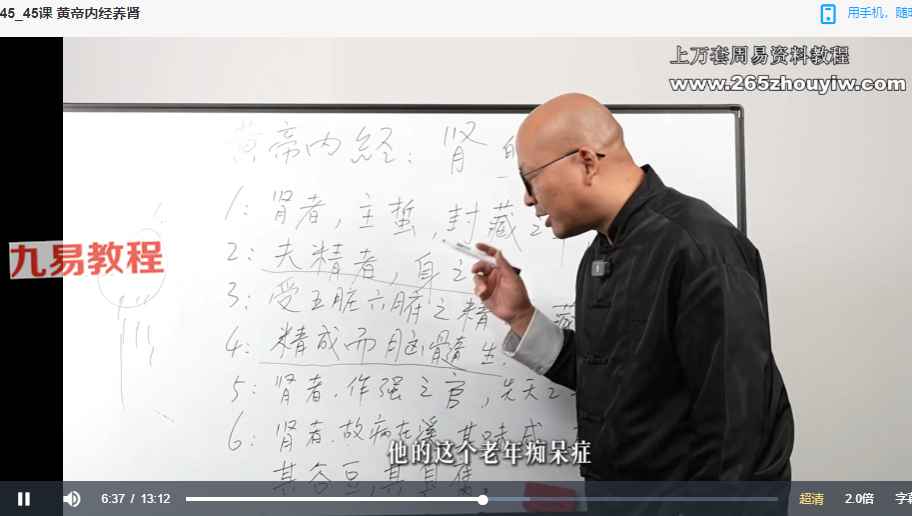 45_45课 黄帝内经养肾
用手机，随
上万套周易资料教程
www.265zhouyiw.com
黄帝内経：肾
1：肾者，主蛰，封藏之
九易教程
2：夫精者，身之
3：受五脏六腑之精 藏
4：精成而脑髓生
5：肾者，作强之官，先天之
6：肾者，故病在溪，其味咸
他的这个老年痴呆症
其谷豆，其
6:37 / 13:12
超清
2.0倍
字幕